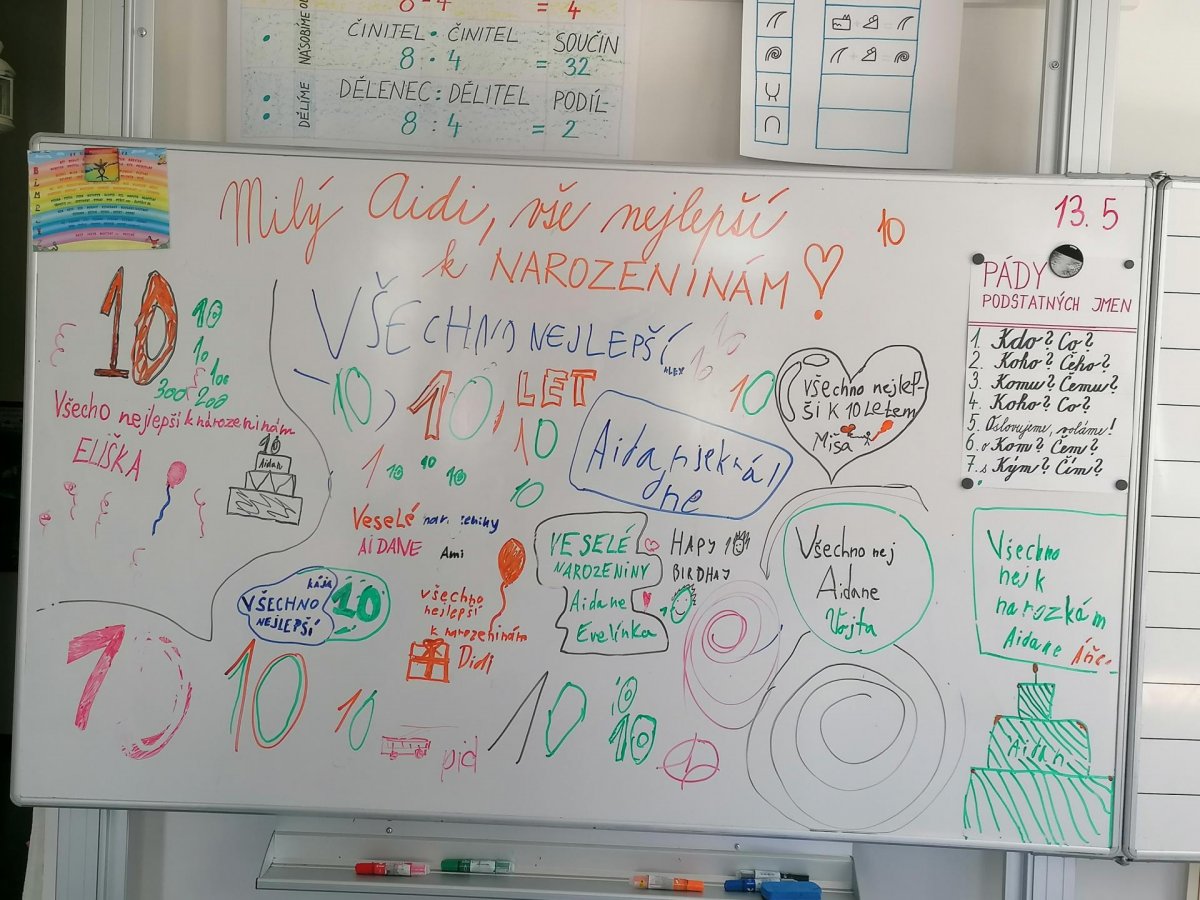 8 - 4 = 4
NÁSOBÍME
ČINITEL · ČINITEL SOUČIN
8 · 4 = 32
DĚLÍME
DĚLENEC : DĚLITEL PODÍL
8 : 4 = 2
Milý Aidi, vše nejlepší
k NAROZENINÁM!
10
13. 5
VŠECHNO NEJLEPŠÍ
ALEX
10
10
10
10
10
100
300 200
Všecho nejlepší k narozeninám
ELIŠKA
10
Aidan
10
10
LET
10
10
10
10
10
10
10
Všechno nejlep-
ší k 10 letem
Miša
PÁDY
PODSTATNÝCH JMEN
1. Kdo? Co?
2. Koho? Čeho?
3. Komu? Čemu?
4. Koho? Co?
5. Oslovujeme, voláme!
6. o Kom? Čem?
7. s Kým? Čím?
Veselé
AIDANE
Ami
VESELÉ
NAROZENINY
Aidane
Evelínka
HAPY 10
BIRDHAY
Všechno nej
Aidane
Vojta
Všechno
nej k
narozkám
Aidane
KÁJA
VŠECHNO
NEJLEPŠÍ
10
všechno
nejlepší
k narozeninám
Didi
10
10
10
pid
10
10
10
Aidan